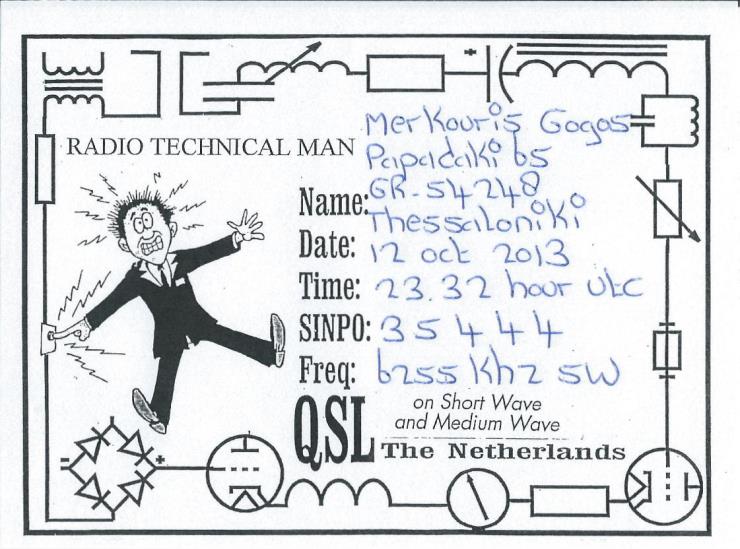 RADIO TECHNICAL MAN
Merkouris Gogos
Papadaki 65
Name: GR-54248
Thessaloniki
Date: 12 oct 2013
Time: 23.32 hour utc
SINPO: 35444
Freq: 6255 Khz SW
QSL on Short Wave
and Medium Wave
The Netherlands